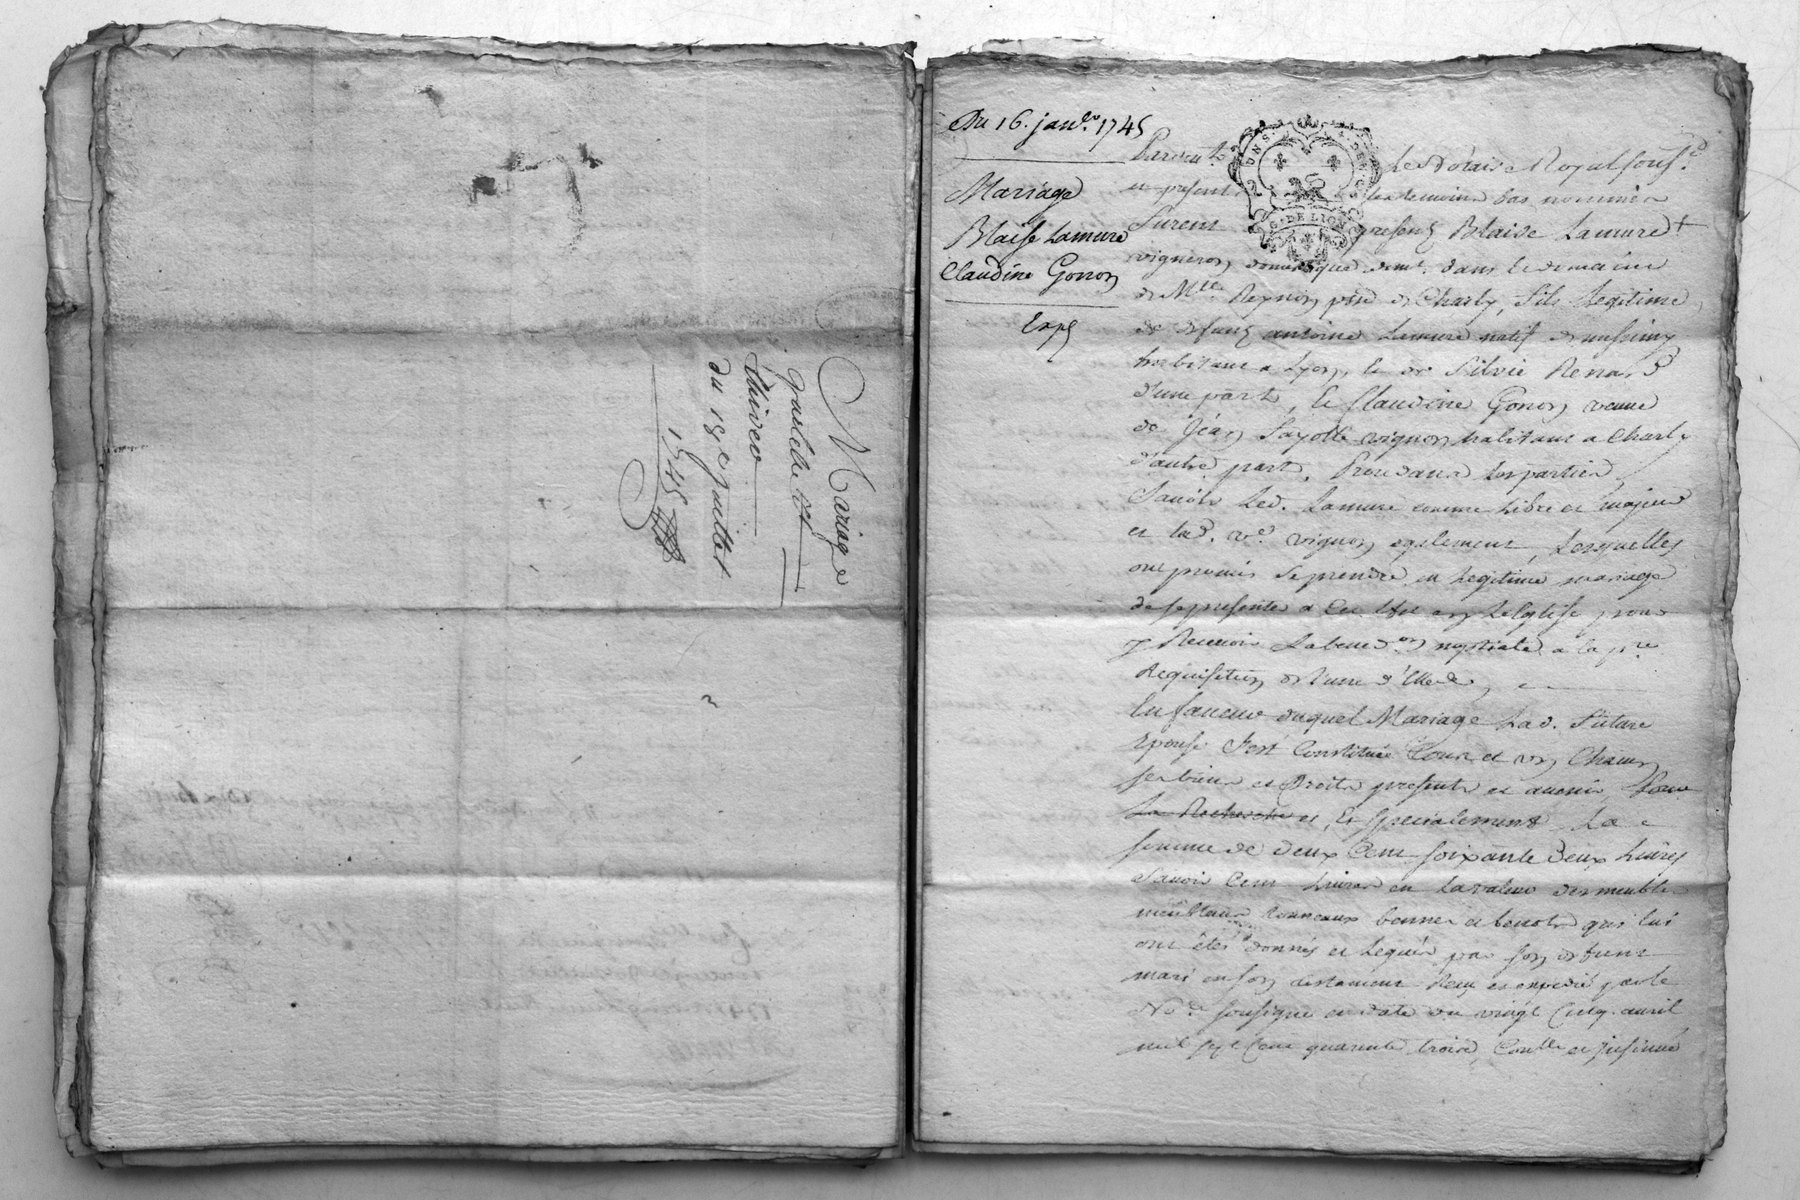 Mariage
du 18e juillet
1745
Du 16. janv.er 1745
Mariage
Blaise Lamure
Claudine Gonon
Expé
UN S.
G. DE LION
Pardevt Le Notaire Royal sousé
et présent les temoins bas nommés
Furent présens Blaise Lamure +
vigneron domestique demt. dans le domaine
de Mlle Reynon psse de Charly, fils Legitime
de defunt antoine Lamure natif de messimy
habitant a Lyon, & de Silvie Renard
d'une part, & Claudine Gonon veuve
de Jean Fayolle vigneron habitant a Charly
d'autre part, Procedans les parties
Savoir Led. Lamure comme Libre et majeur
et lad. ve. vignon également, Lesquelles
ont promis se prendre en Legitime mariage
de se presenter a cet effet en Leglise pour
y Recevoir La bened.on nuptiale a la pre
Requisition de l'une d'Elles
En faveur duquel Mariage Lad. future
Epouse s'est Constituée Tous et un Chacun
ses biens et Droits presents et avenir Pour
La Recherche et, Et Specialement La
somme de deux Cent soixante Deux Livres
Savoir Cent Livres en La valeur des meubles
meublans tonneaux bennes et benots qui lui
ont étés donnés et Legués par son defunt
mari en son testament Reçu et expedié par le
No.re sousigné en date du vingt Cinq avril
mil sept Cent quarante trois, Conllé et insinué